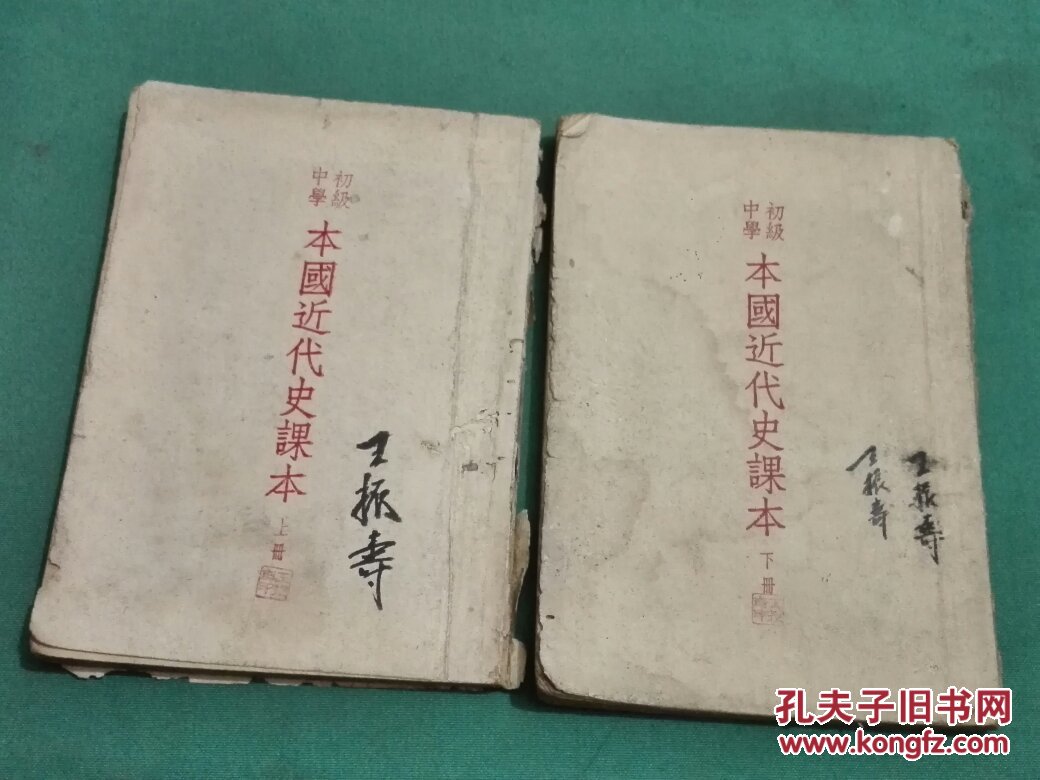 初級
中學
本國近代史課本
上冊
王振寿
初級
中學
本國近代史課本
下冊
王振寿
王振寿
孔夫子旧书网
www.kongfz.com